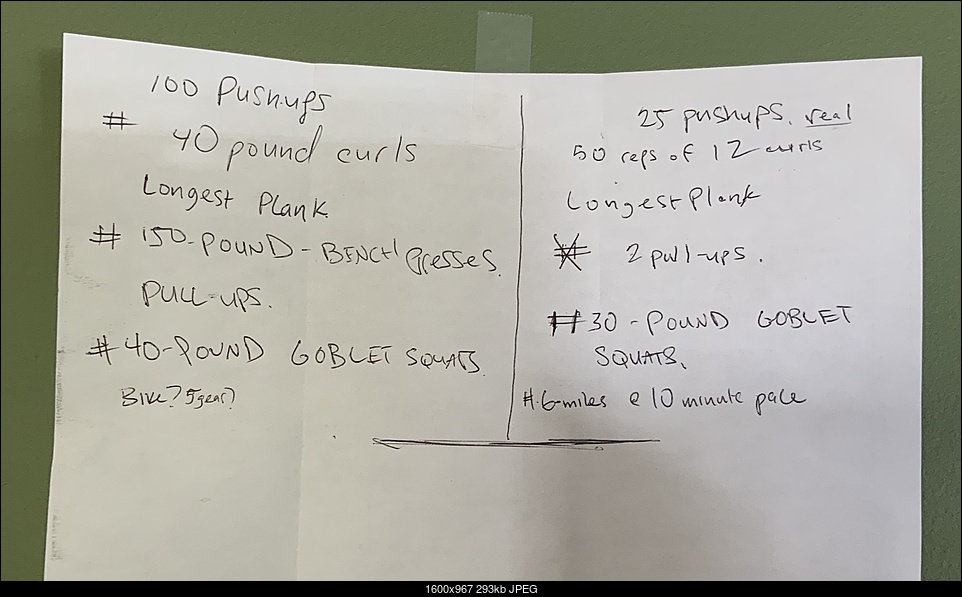 100 Pushups
# 40 pound curls
Longest Plank
# 150-POUND-BENCH Presses.
PULL-UPS.
# 40-POUND GOBLET SQUATS.
Bike? 5 gear?
25 pushups. real
50 reps of 12 curls
Longest Plank
# 2 pull-ups.
# 30-POUND GOBLET
SQUATS.
#. 6-miles @ 10 minute pace
1600x967 293kb JPEG